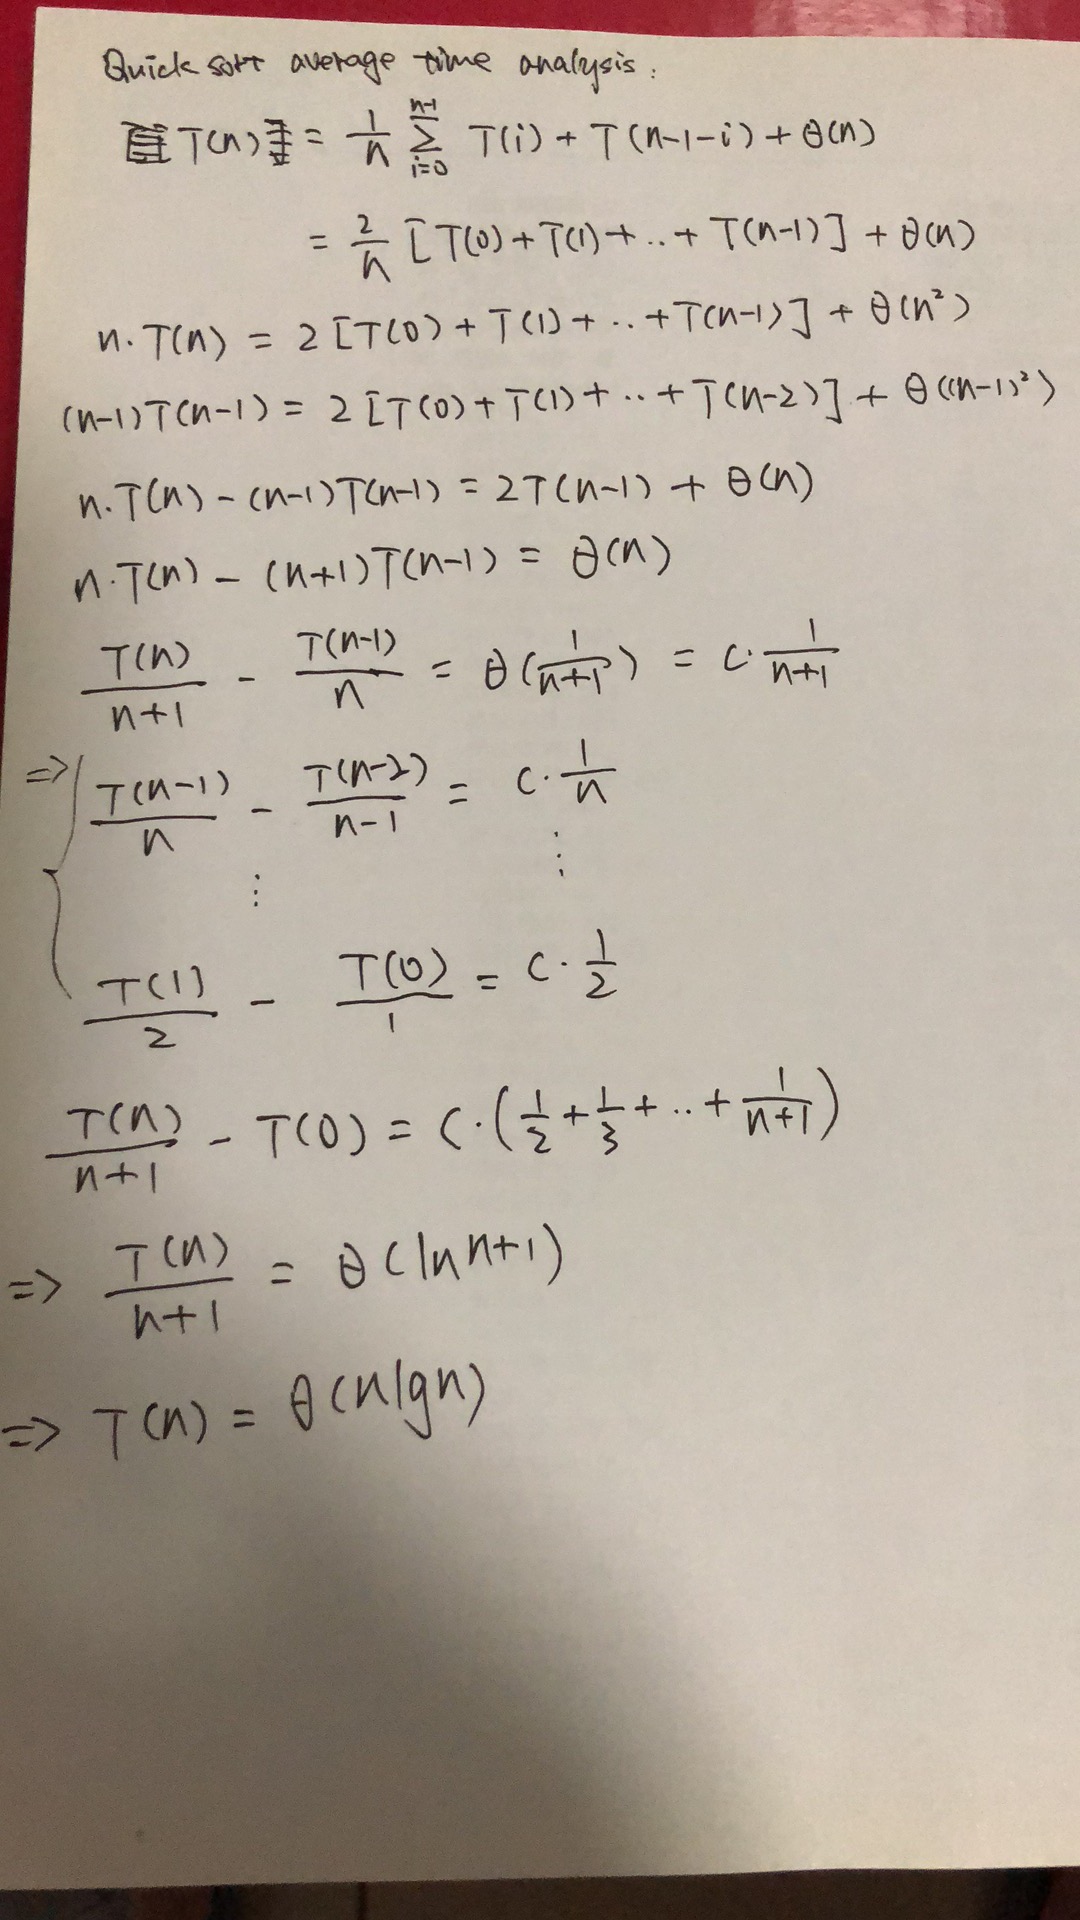 Quick sort average time analysis:
T(n) = 1/n ∑_{i=0}^{n-1} T(i) + T(n-1-i) + θ(n)
= 2/n [T(0) + T(1) + .. + T(n-1)] + θ(n)
n·T(n) = 2[T(0) + T(1) + .. + T(n-1)] + θ(n²)
(n-1)T(n-1) = 2[T(0) + T(1) + .. + T(n-2)] + θ((n-1)²)
n·T(n) - (n-1)T(n-1) = 2T(n-1) + θ(n)
n·T(n) - (n+1)T(n-1) = θ(n)
T(n)/(n+1) - T(n-1)/n = θ(1/(n+1)) = c·1/(n+1)
=> { T(n-1)/n - T(n-2)/(n-1) = c·1/n
⋮ ⋮
T(1)/2 - T(0)/1 = c·1/2
T(n)/(n+1) - T(0) = c·(1/2 + 1/3 + .. + 1/(n+1))
=> T(n)/(n+1) = θ(ln n+1)
=> T(n) = θ(n lg n)